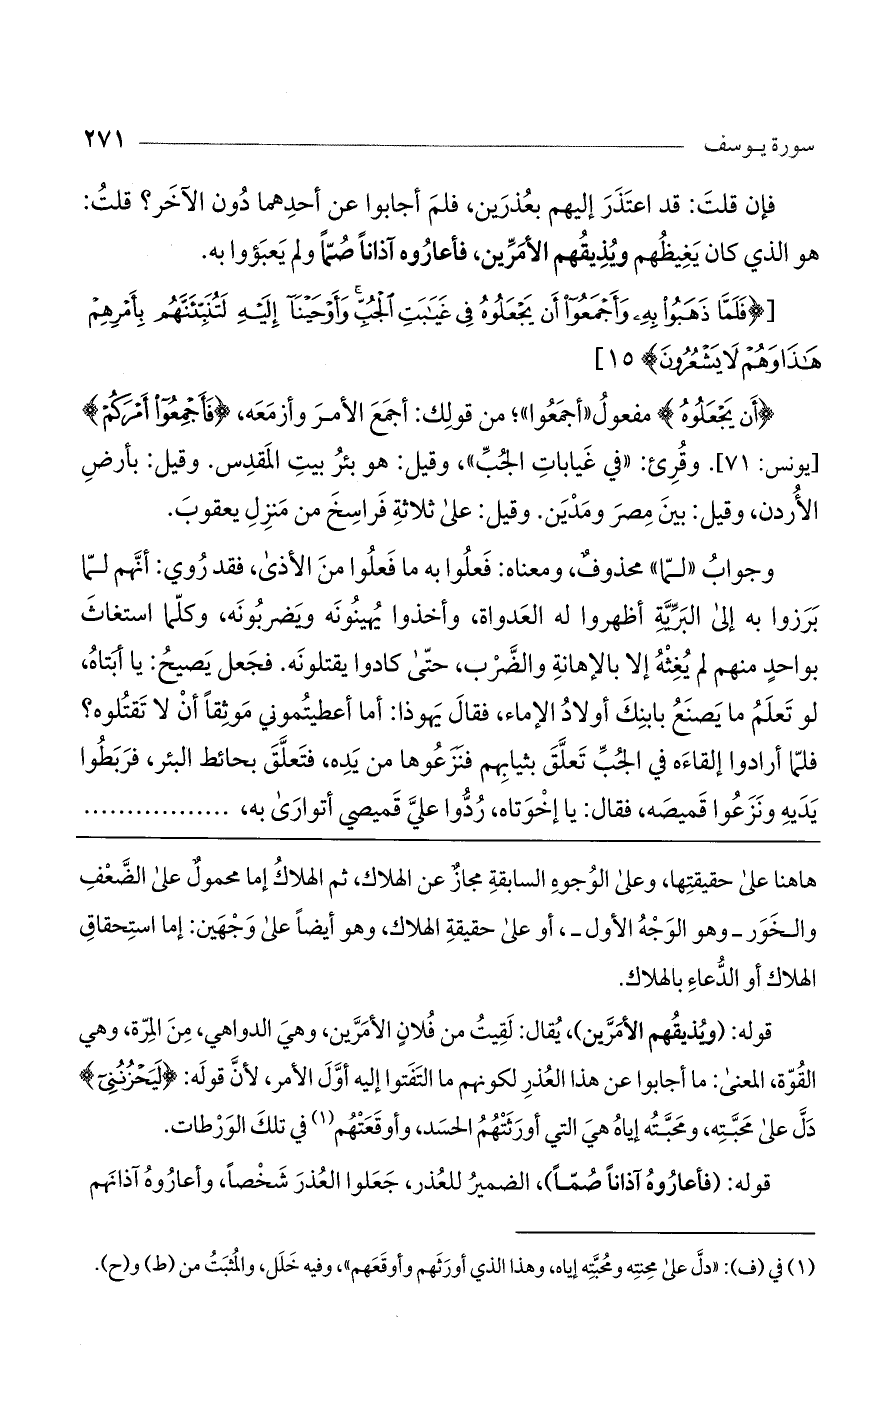 سورة يوسف ٢٧١
فإن قلتَ: قد اعتَذَرَ إليهم بعُذرَين، فلمَ أجابوا عن أحدِهما دُون الآخَر؟ قلتُ:
هو الذي كان يَغِيظُهم ويُذِيقُهم الأمَرِّين، فأعارُوه آذاناً صُمّاً ولم يَعبَؤوا به.
[﴿فَلَمَّا ذَهَبُوا۟ بِهِۦ وَأَجْمَعُوٓا۟ أَن يَجْعَلُوهُ فِى غَيَـٰبَتِ ٱلْجُبِّ ۚ وَأَوْحَيْنَآ إِلَيْهِ لَتُنَبِّئَنَّهُم بِأَمْرِهِمْ
هَـٰذَا وَهُمْ لَا يَشْعُرُونَ﴾ ١٥]
﴿أَن يَجْعَلُوهُ﴾ مفعولُ «أجمَعُوا»؛ من قولِك: أجمَعَ الأمرَ وأزمَعَه، ﴿فَأَجْمِعُوٓا۟ أَمْرَكُمْ﴾
[يونس: ٧١]. وقُرِئ: «في غَياباتِ الجُبِّ»، وقيل: هو بئرُ بيتِ المَقدِس. وقيل: بأرضِ
الأُردن، وقيل: بينَ مِصرَ ومَدْيَن. وقيل: علىٰ ثلاثةِ فَراسِخَ من مَنزِلِ يعقوبَ.
وجوابُ «لـمّا» محذوفٌ، ومعناه: فَعلُوا به ما فَعلُوا منَ الأذىٰ، فقد رُوي: أنَّهم لـمّا
بَرَزوا به إلىٰ البَرِّيَّةِ أظهروا له العَدواة، وأخذوا يُهينُونَه ويَضرِبُونَه، وكلّما استغاثَ
بواحدٍ منهم لم يُغِثْهُ إلا بالإهانةِ والضَّرْب، حتّىٰ كادوا يقتلونَه. فجَعل يَصيحُ: يا أبَتاهُ،
لو تَعلَمُ ما يَصنَعُ بابنِكَ أولادُ الإماء، فقالَ يَهوذا: أما أعطيتُموني مَوثِقاً أنْ لا تَقتُلوه؟
فلمّا أرادوا إلقاءَه في الجُبِّ تَعلَّقَ بثيابِهم فنَزَعُوها من يَدِه، فتَعلَّقَ بحائط البئر، فرَبَطُوا
يَدَيهِ ونَزَعُوا قَميصَه، فقال: يا إخْوَتاه، رُدُّوا عليَّ قَميصي أتوارَىٰ به، .................
هاهنا علىٰ حقيقتِها، وعلىٰ الوُجوهِ السابقةِ مجازٌ عن الهلاك، ثم الهلاكُ إما محمولٌ علىٰ الضَّعْفِ
والـخَوَر ـ وهو الوَجْهُ الأول ـ، أو علىٰ حقيقةِ الهلاك، وهو أيضاً علىٰ وَجْهَين: إما استِحقاقِ
الهلاك أو الدُّعاءِ بالهلاك.
قوله: (ويُذيقُهم الأمَرَّين)، يُقال: لَقِيتُ من فُلانٍ الأمَرَّين، وهيَ الدواهي، مِنَ المِرّة، وهي
القُوّة، المعنىٰ: ما أجابوا عن هذا العُذرِ لكونهم ما التَفَتوا إليه أوَّلَ الأمر، لأنَّ قولَه: ﴿لَيَحْزُنُنِىٓ﴾
دَلَّ علىٰ مَحَبَّتِه، ومَحَبَّتُه إياهُ هيَ التي أورَثَتْهُمُ الحسَد، وأوقَعَتْهُم(١) في تلكَ الوَرْطات.
قوله: (فأعارُوهُ آذاناً صُمّـاً)، الضميرُ للعُذر، جَعَلوا العُذرَ شَخْصاً، وأعارُوهُ آذانَهم
(١) في (ف): «دلَّ علىٰ مِحنتِه ومحُبَّتِه إياه، وهذا الذي أورَثَهم وأوقَعَهم»، وفيه خَلَل، والمُثبَتُ من (ط) و(ح).